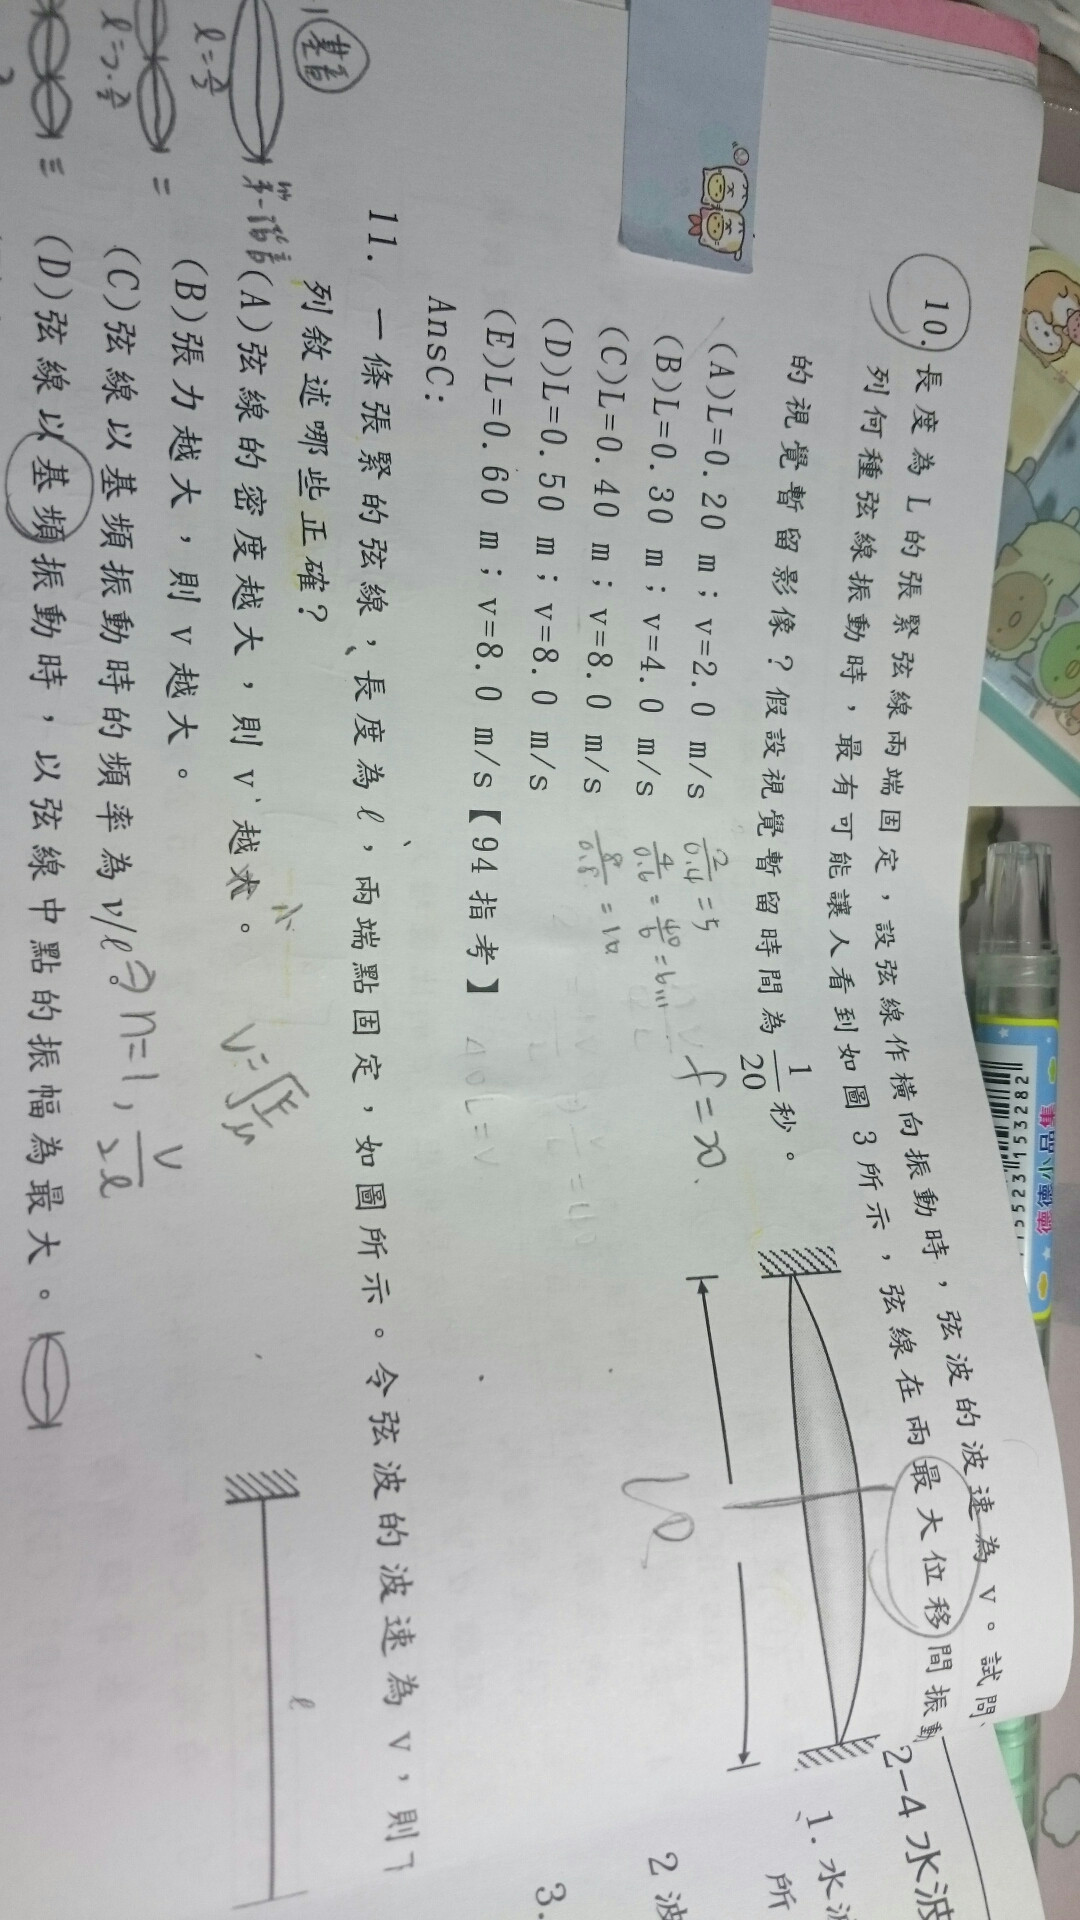 10.長度為 L 的張緊弦線兩端固定,設弦線作橫向振動時,弦波的波速為 v。試問
列何種弦線振動時,最有可能讓人看到如圖 3 所示,弦線在兩最大位移間振動
的視覺暫留影像?假設視覺暫留時間為 1/20 秒。
(A)L=0.20 m;v=2.0 m/s 2/0.4=5
(B)L=0.30 m;v=4.0 m/s 4/0.6=40/6=6…
(C)L=0.40 m;v=8.0 m/s 8/0.8=10
(D)L=0.50 m;v=8.0 m/s
(E)L=0.60 m;v=8.0 m/s【94 指考】
AnsC:
11. 一條張緊的弦線,長度為 ℓ,兩端點固定,如圖所示。令弦波的波速為 v,則下
列敘述哪些正確?
(A)弦線的密度越大,則 v 越大。
小
(B)張力越大,則 v 越大。
(C)弦線以基頻振動時的頻率為 v/ℓ。
n=1, v/2ℓ
(D)弦線以基頻振動時,以弦線中點的振幅為最大。
ℓ
基音
2-4 水波
1. 水波
所
2 波
3.
523153282